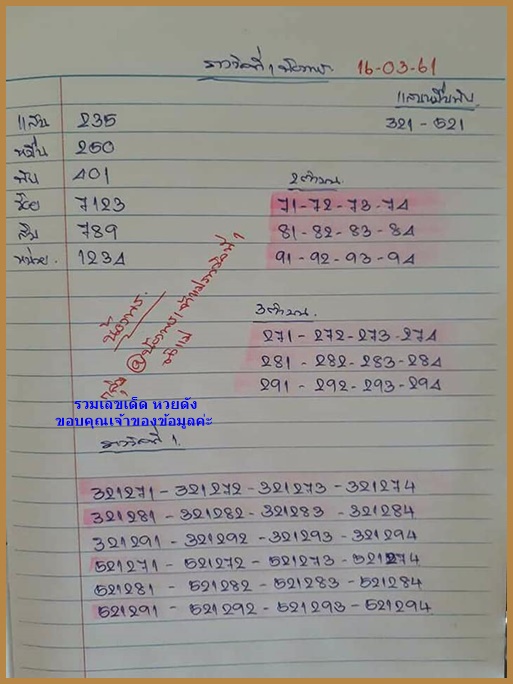 รางวัลที่ 1 น้องพร. 16-03-61
แสนหมื่นพัน
แสน 235 321 - 521
หมื่น 250
พัน 401
ร้อย 7123
สิบ 789
หน่วย. 1234
2ตัวบน
71-72-73-74
81-82-83-84
91-92-93-94
น้องพร.
3ตัวบน.
271 - 272-273-274
281 - 282-283-284
291 - 292-293-294
รวมเลขเด็ด หวยดัง
ขอบคุณเจ้าของข้อมูลค่ะ
รางวัลที่ 1.
321271 - 321272 - 321273 - 321274
321281 - 321282 - 321283 - 321284
321291 - 321292 - 321293 - 321294
521271 - 521272 - 521273 - 521274
521281 - 521282 - 521283 - 521284
521291 - 521292 - 521293 - 521294